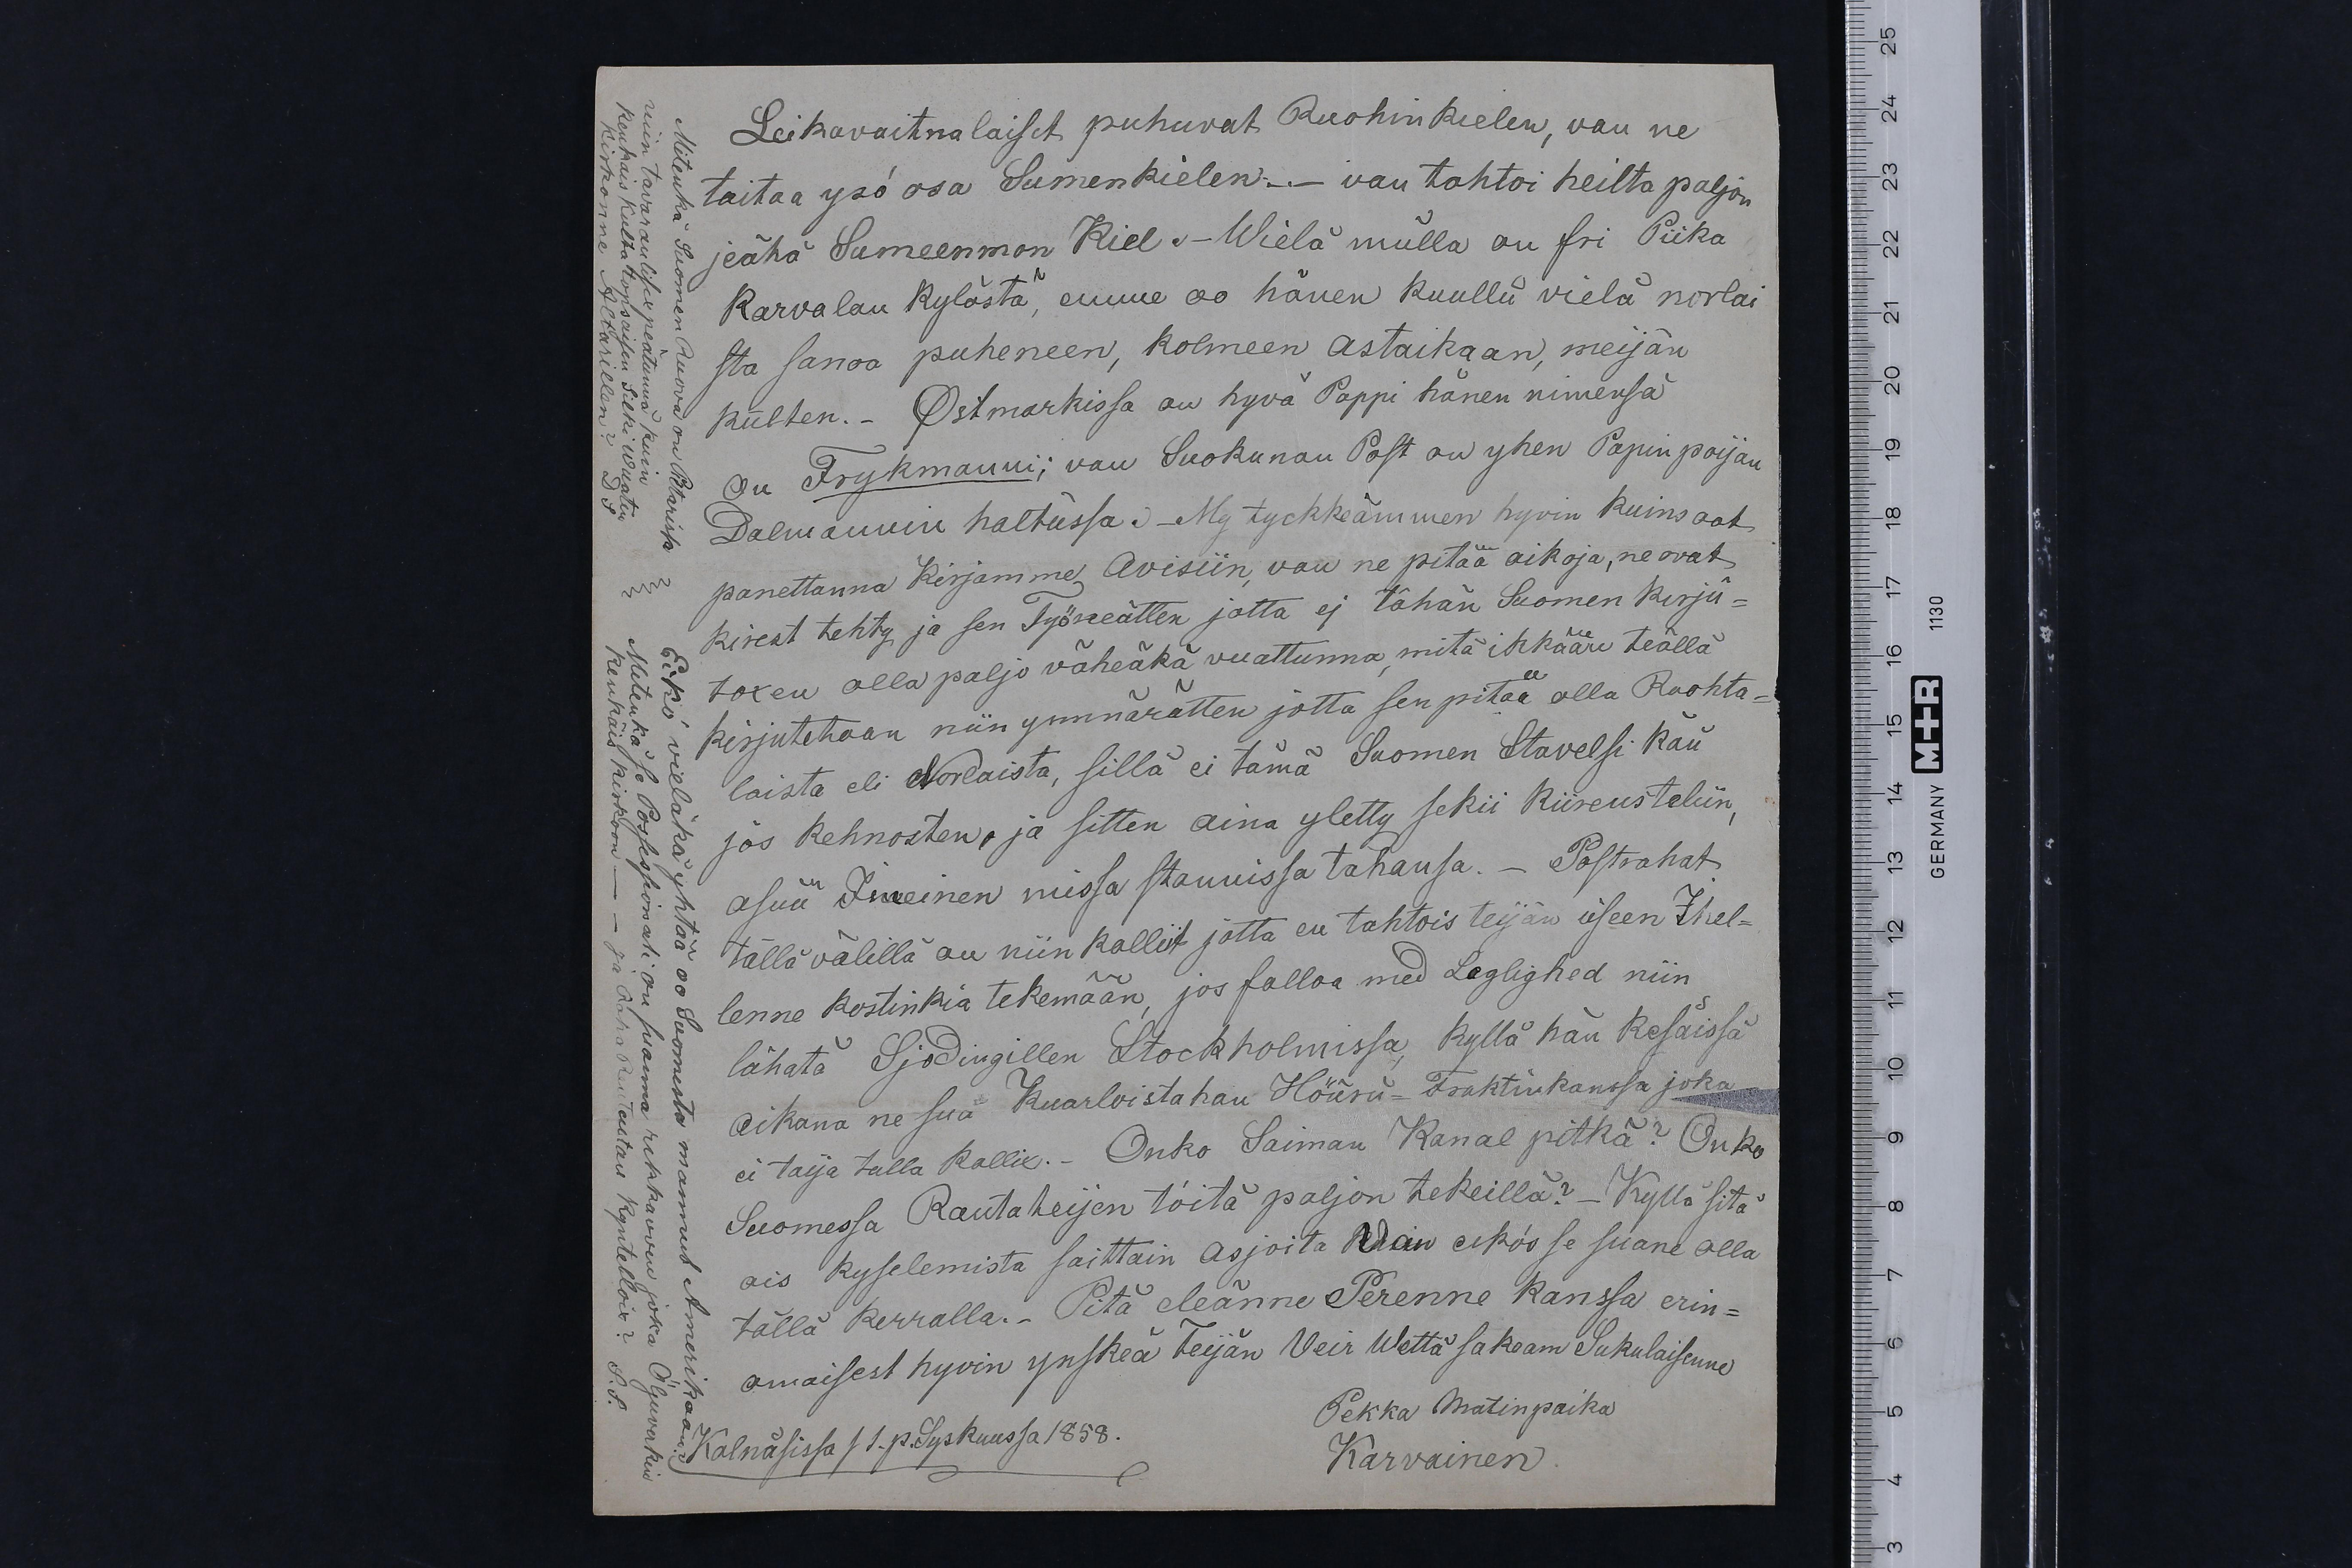 Leikavaitnalaiset puhuvat Ruohinkielen, van ne
taitaa ysó osa Sumenkielen -.- van tahtoi heiltä paljon
jeähä Sumeenmon Kiel. - Wielä mulla on fri Piika
Karvalan Kylästä, emme oo hänen kuullu vielä norlai
sta sanoa puheneen, kolmeen astaikaan, meijän
kuulten. - Østmarkissa on hyvä Pappi hänen nimensä
on Frykmanni; van Suokunan Post on yhen Papin poijan
Dalmannin haltussa. - My tyckkeämmen hyvin kuins oot
panettanna Kirjamme Avisiin, van ne pitää aikoja, ne ovat
kirest tehty ja sen Työneätten jotta ej tähän Suomen Kirju=
toxen olla paljo väheäkä vuattunna, mitä ikkään teällä
kirjutehaan niin ynnärätten jotta sen pitää olla Ruohta=
laista eli Norlaista, sillä ei tämä Suomen Stavelsi käu
jös kehnosten, ja sitten aina yletty sekii kiireusteliin,
asuu Imeinen missa stannissa tahansa. - Postrahat
tällä välillä on niin kalliit jotta en tahtois teijän itseen Ihel=
lenne kostinkia tekemään, jos falloa med Leglighed niin
lähatä Sjödingillen Stockholmissa, kyllä hän kesäissä
aikana ne sua Kuarloistahan Höüru= Fraktinkanssa joka
ei taija tulla kallix. - Onko Saiman Kanal pitkä? Onko
Suomessa Rautateijen töitä paljon tekeillä? - Kyllä sitä
ois kyselemista saittain asjoita Vain eikös se suane olla
tällä kerralla. - Pitä eleänne Perenne kanssa erin=
omaisest hyvin ynskeä Teijän Veir Wettä sakeam Sukulaisenne
Pekka Matinpaika
Karvainen
Kalnäsissa / 1. p. Syskuussa 1858.
Eikó vieläkä yhtää oo Suomesta mannut Amerikaan?
Mitenkä se Possessionati on suanna rikkavven joka
Kenkäis kirkoon - - - ja
Mitenkä Suomen Ruova on Pitarissa
niin tavaraulisex peätünnä kuin
Kenkäis kultatopsaisen Silkiwuaten
Kirkonne Altarillen? D S